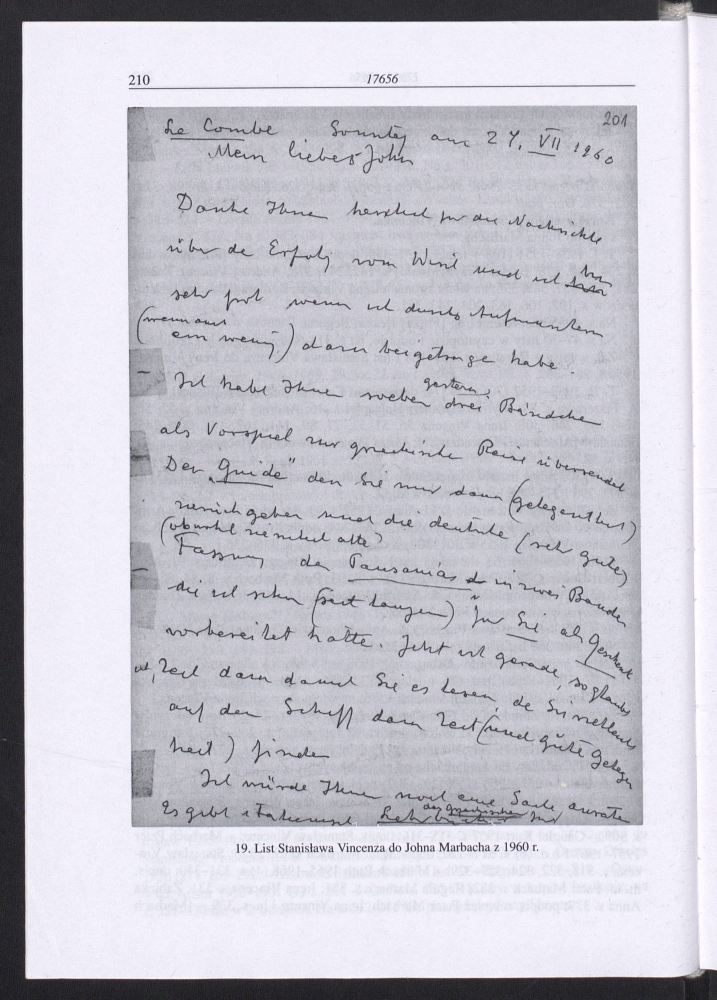 210 17656
201
La Combe Sonntag am 24. VII 1960
Mein lieber John
Danke Ihnen herzlich für die Nachrichte
über de Erfolg vom Wesil und ich bin
sehr froh wenn ich durch Aufmuntern
(wenn auch
ein wenig) dazu beigetrage habe
– Ich habe Ihnen soeben gestern drei Bändchen
als Vorspiel zur griechische Reise übersendet
Der „Guide" den Sie mir dann (gelegentlich)
zurückgeben und die deutsche (sehr gute)
(obwohl ziemlich alte)
Fassung des Pausanias in zwei Bänden
die ich schon (seit langem) für Sie als Geschenk
vorbereitet hatte. Jetzt ist gerade, so glaube
ich, Zeit dazu damit Sie es lesen, da Sie vielleicht
auf dem Schiff dazu Zeit (und gute Gelegen
heit) finden
Ich würde Ihnen noch eine Sache anraten
Es gibt Lehrbücher des Griechischen für
19. List Stanisława Vincenza do Johna Marbacha z 1960 r.